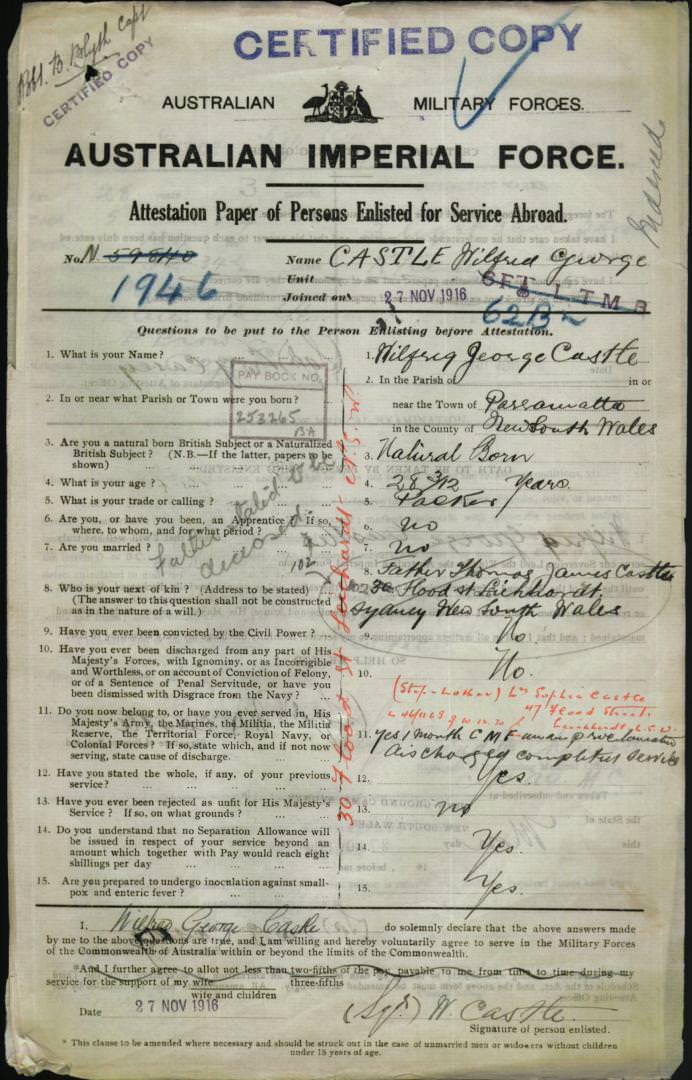 CERTIFIED COPY
CERTIFIED COPY
AUSTRALIAN MILITARY FORCES.
AUSTRALIAN IMPERIAL FORCE.
Indexed
Attestation Paper of Persons Enlisted for Service Abroad.
No. N. 59840 Name CASTLE Wilfred George
1946 Unit
6FT. L T M B
Joined on 27 NOV 1916
62Bn
Questions to be put to the Person Enlisting before Attestation.
1. What is your Name? 1. Wilfrid George Castle
PAY BOOK NO.
253265
BA
2. In or near what Parish or Town were you born? 2. In the Parish of in or
near the Town of Parramatta
in the County of New South Wales
3. Are you a natural born British Subject or a Naturalized
British Subject? (N.B.—If the latter, papers to be
shown) 3. Natural Born
4. What is your age? 4. 28 Years
5. What is your trade or calling? 5. Packer
6. Are you, or have you been, an Apprentice? If so,
where, to whom, and for what period? 6. no
7. Are you married? 7. no
Father stated to be
deceased.
102
8. Who is your next of kin? (Address to be stated)
(The answer to this question shall not be constructed
as in the nature of a will.)
8. Father Thomas James Castle
30 Flood st Leichhardt
Sydney New South Wales
30 Flood st Leichhardt N.S.W
9. Have you ever been convicted by the Civil Power? 9. No.
10. Have you ever been discharged from any part of His
Majesty's Forces, with Ignominy, or as Incorrigible
and Worthless, or on account of Conviction of Felony,
or of a Sentence of Penal Servitude, or have you
been dismissed with Disgrace from the Navy? 10. No.
(Step-Mother) Mrs Sophia Castle
47 Flood Street
Leichhardt N.S.W.
11. Do you now belong to, or have you ever served in, His
Majesty's Army, the Marines, the Militia, the Militia
Reserve, the Territorial Force, Royal Navy, or
Colonial Forces? If so, state which, and if not now
serving, state cause of discharge.
11. yes 1 month C M F under proclamation
discharged completed service
12. Have you stated the whole, if any, of your previous
service? 12. Yes.
13. Have you ever been rejected as unfit for His Majesty's
Service? If so, on what grounds? 13. no
14. Do you understand that no Separation Allowance will
be issued in respect of your service beyond an
amount which together with Pay would reach eight
shillings per day 14. Yes.
15. Are you prepared to undergo inoculation against small-
pox and enteric fever? 15. Yes.
I, Wilfrid George Castle do solemnly declare that the above answers made
by me to the above questions are true, and I am willing and hereby voluntarily agree to serve in the Military Forces
of the Commonwealth of Australia within or beyond the limits of the Commonwealth.
*And I further agree to allot not less than two-fifths of the pay payable to me from time to time during my
three-fifths
service for the support of my wife
wife and children
Date 27 NOV 1916 (Sgd.) W. Castle
Signature of person enlisted.
* This clause to be amended where necessary and should be struck out in the case of unmarried men or widowers without children
under 18 years of age.